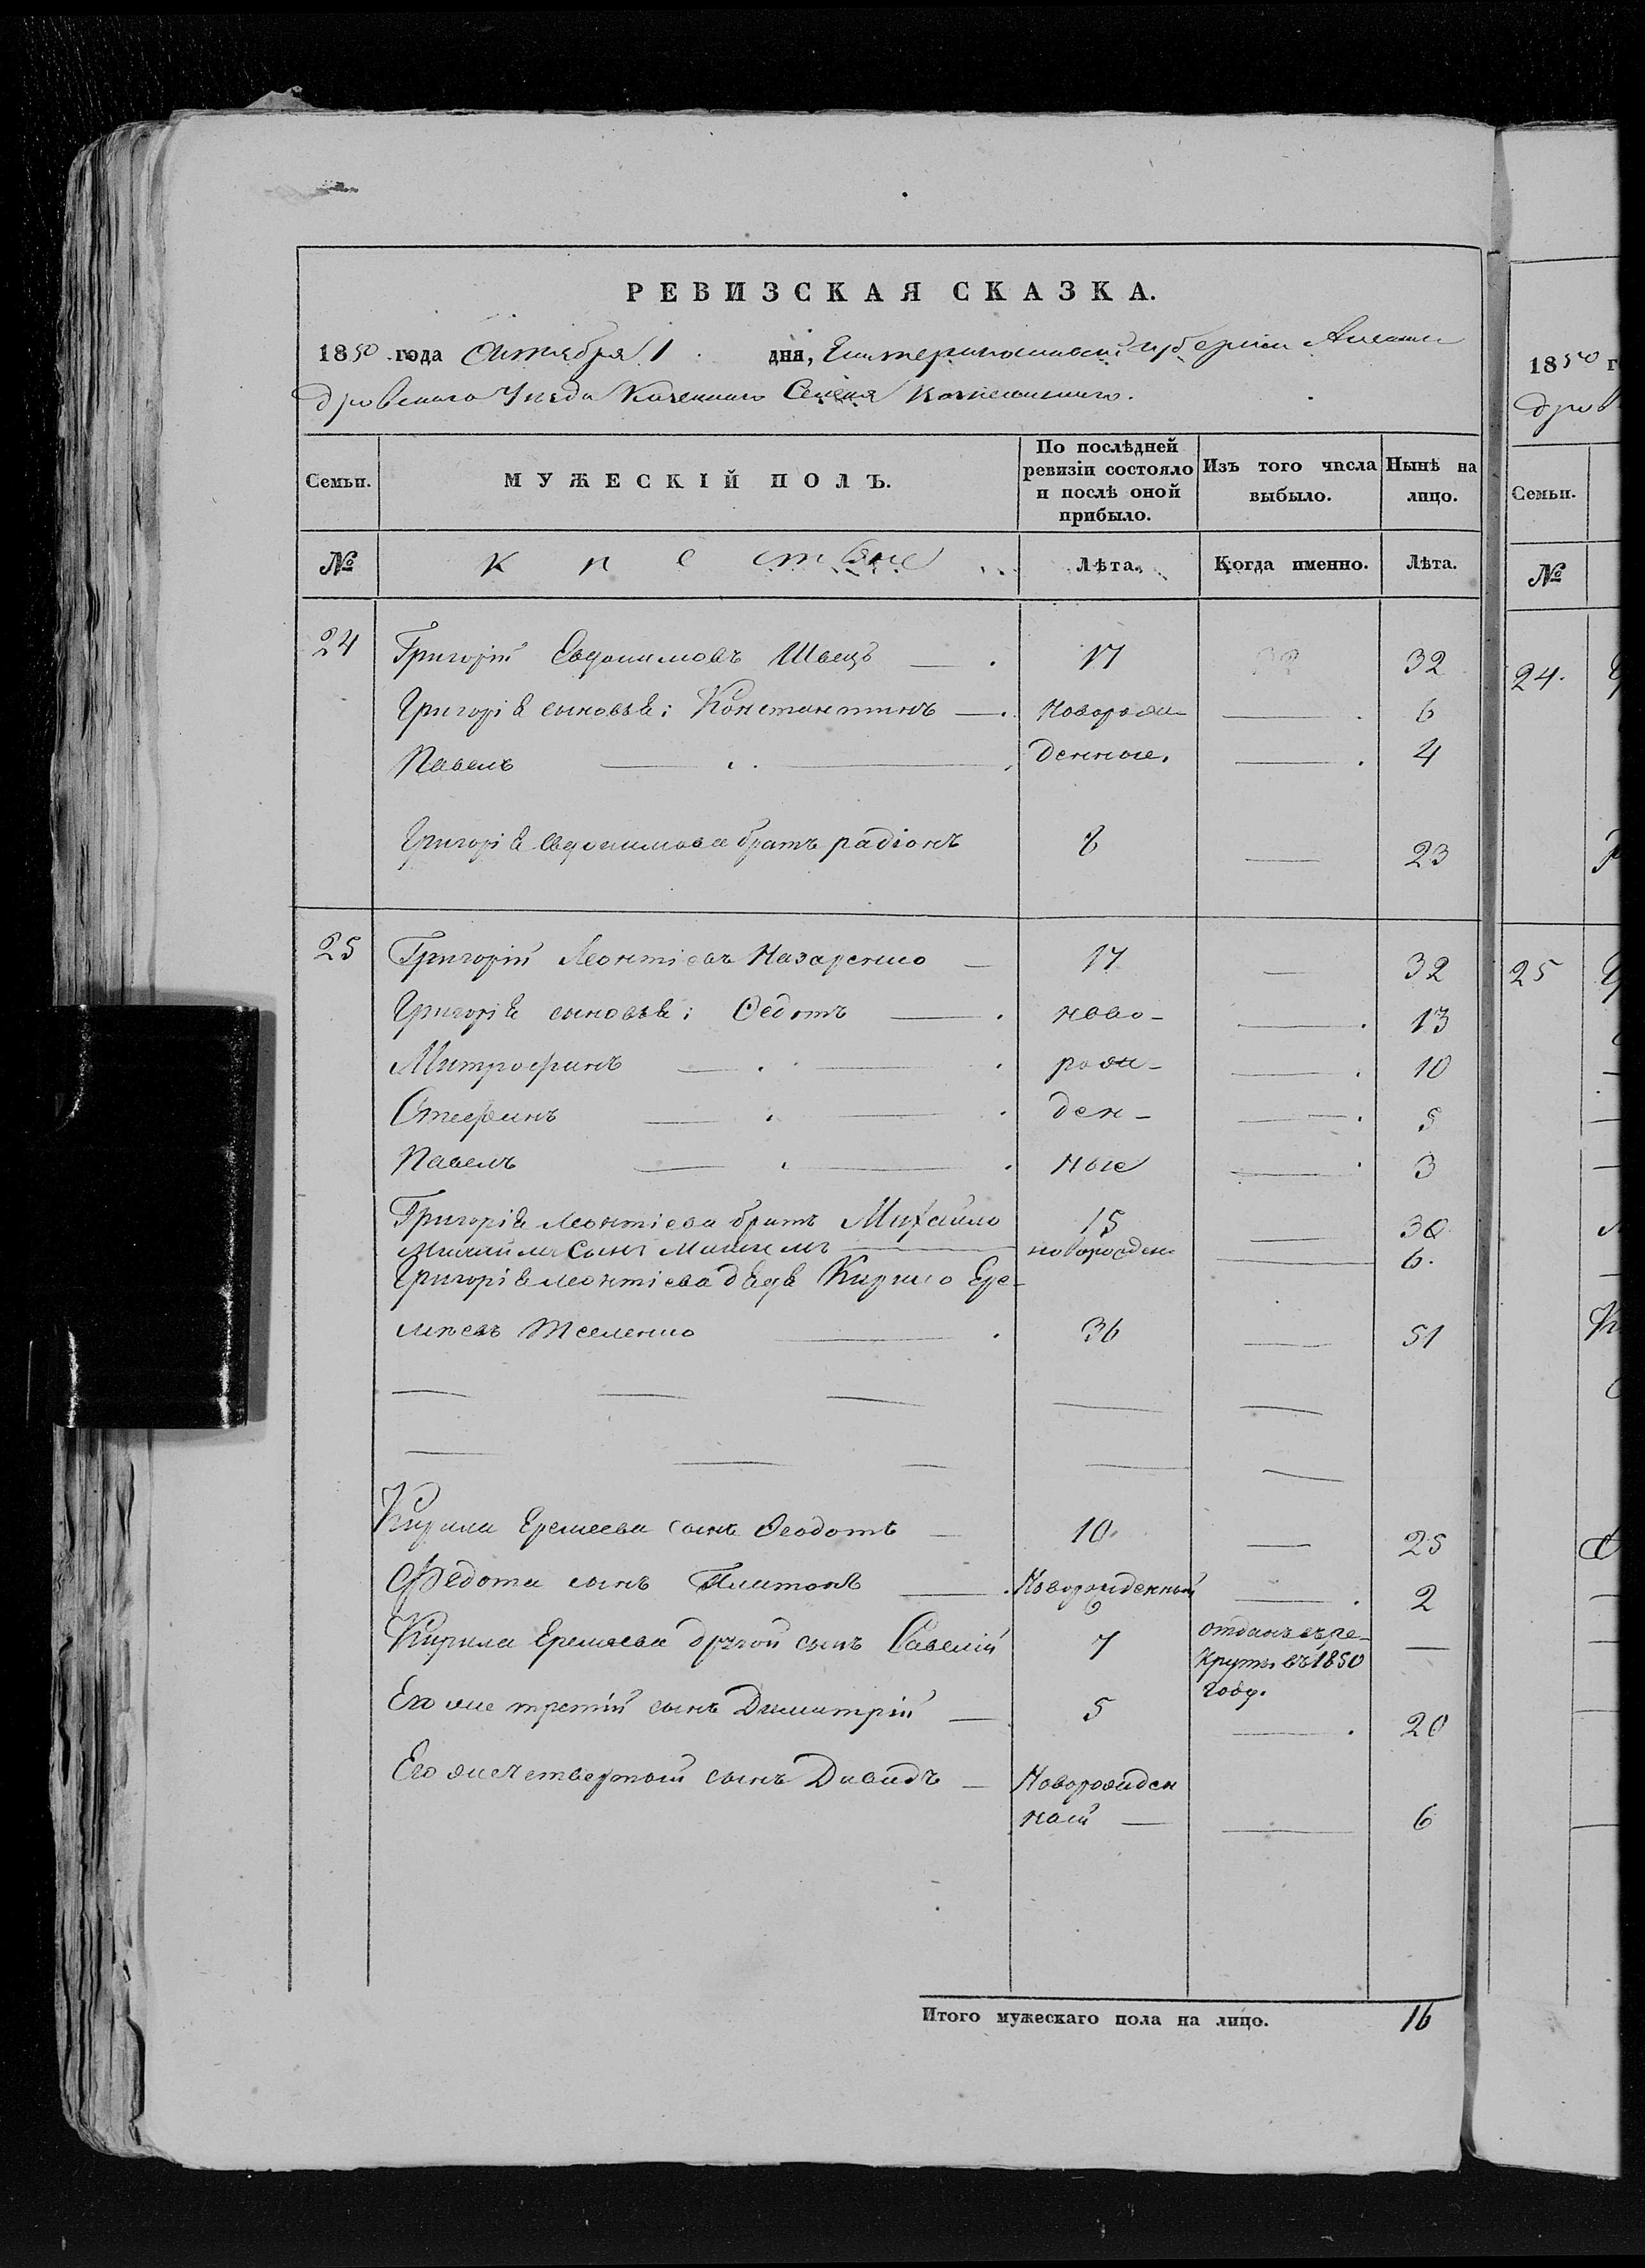 РЕВИЗСКАЯ СКАЗКА.
1850 года Октября 1 дня, Екатеринославской губернии Алексан
дровскаго Уезда Казеннаго Селения
Семьи.
МУЖЕСКІЙ ПОЛЪ.
По послѣдней ревизіи состояло и послѣ оной прибыло.
Изъ того числа выбыло.
Нынѣ на лицо.
№
Крестьяне
Лѣта.
Когда именно.
Лѣта.
24 Григорій Евдокимовъ Швецъ — 17 32
Григорія сыновья: Константинъ — Новорож — 6
Павелъ — денные. — 4
Григорія Евдокимова братъ радіонъ 8 — 23
25 Григорій Леонтіевъ Назаренко — 17 — 32
Григорія сыновья: Федотъ — ново- — 13
Митрофанъ — рож- — 10
Стефанъ — ден- — 5
Павелъ — ные — 3
Григорія Леонтіева братъ Михайло 15 — 30
Михайла сынъ — новорожден. — 6.
Григорія Леонтіева дядя Кирило Ере-
мѣевъ — 36 — 51
Кирила Еремеева сынъ Феодотъ — 10. — 25
Федота сынъ Платонъ — Новорожденный — 2
Кирила Еремѣева другой сынъ Савелій 7 отданъ въ ре- —
круты въ 1850
году.
Его же третій сынъ Димитрій — 5 — 20
Его же четвертый сынъ Давидъ — Новорожден
ный — — 6
Итого мужескаго пола на лицо. 16
1850 г
дров
Семьи.
№
24.
25